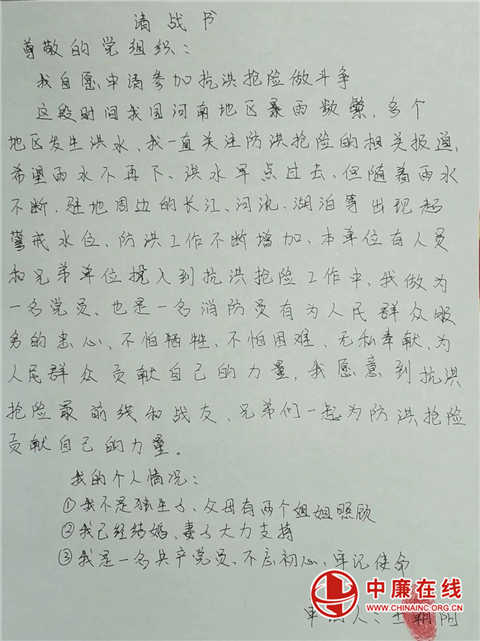 请战书
尊敬的党组织：
我自愿申请参加抗洪抢险做斗争
这段时间我国河南地区暴雨频繁、多个
地区发生洪水、我一直关注防洪抢险的相关报道，
希望雨水不再下、洪水早点过去、但随着雨水
不断、驻地周边的长江、河流、湖泊等出现超
警戒水位、防洪工作不断增加、本单位有人员
和兄弟单位投入到抗洪抢险工作中、我做为
一名党员、也是一名消防员有为人民群众服
务的忠心、不怕牺牲、不怕困难、无私奉献、为
人民群众贡献自己的力量，我愿意到抗洪
抢险最前线和战友、兄弟们一起为防洪抢险
贡献自己的力量。
我的个人情况：
①我不是独生子、父母有两个姐姐照顾
②我已经结婚、妻子大力支持
③我是一名共产党员、不忘初心、牢记使命
申请人：王朝阳
中廉在线
WWW.CHINAINC.ORG.CN